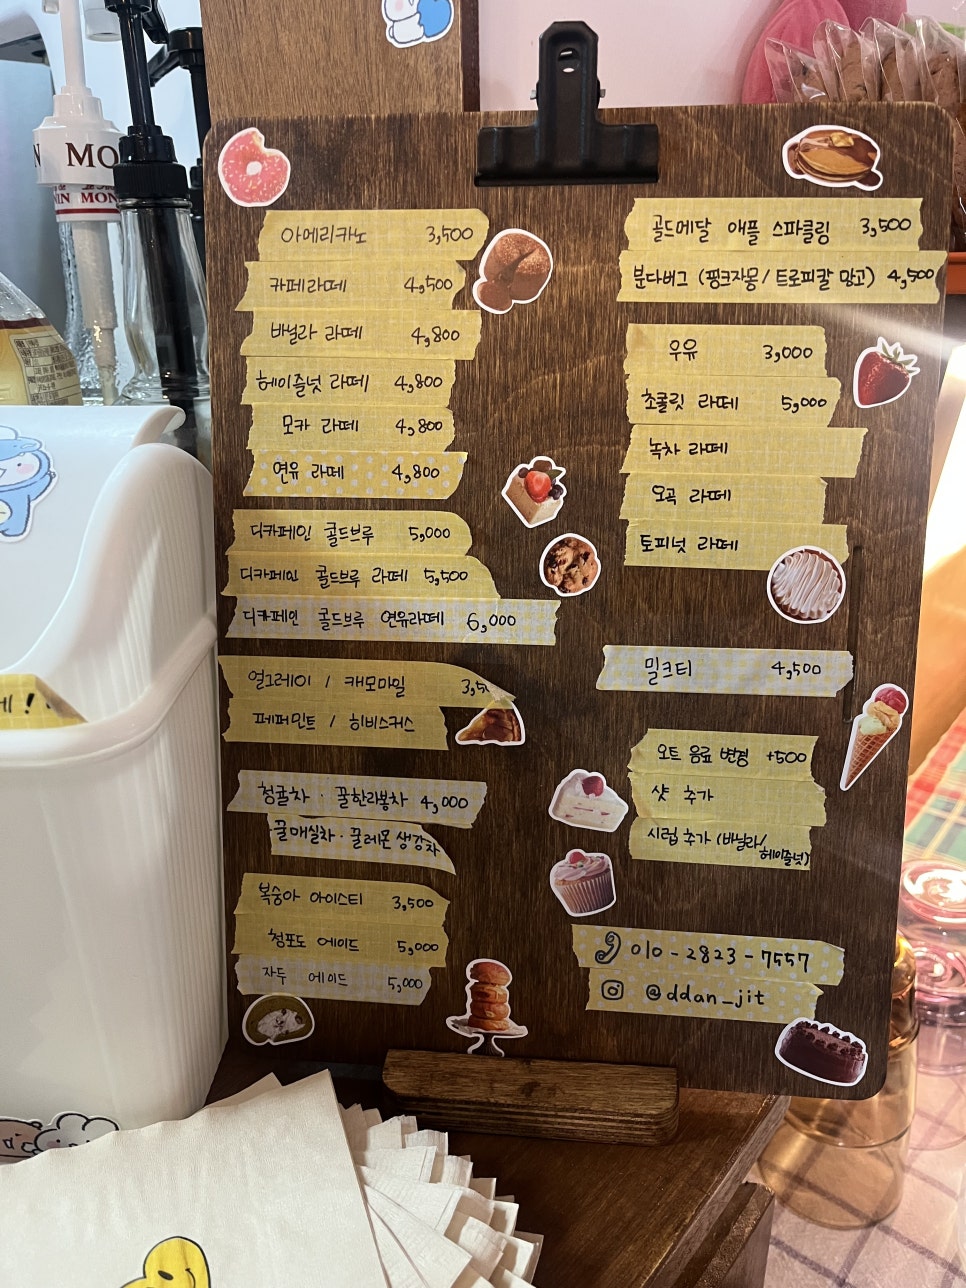 MO
MON
아메리카노 3,500
카페라떼 4,500
바닐라 라떼 4,800
헤이즐넛 라떼 4,800
모카 라떼 4,800
연유 라떼 4,800
디카페인 콜드브루 5,000
디카페인 콜드브루 라떼 5,500
디카페인 콜드브루 연유라떼 6,000
얼그레이 / 캐모마일 3,5
페퍼민트 / 히비스커스
청귤차 · 꿀한라봉차 4,000
꿀매실차 · 꿀레몬생강차
복숭아 아이스티 3,500
청포도 에이드 5,000
자두 에이드 5,000
골드메달 애플 스파클링 3,500
분다버그 (핑크자몽 / 트로피칼 망고) 4,500
우유 3,000
초콜릿 라떼 5,000
녹차 라떼
오곡 라떼
토피넛 라떼
밀크티 4,500
오트 음료 변경 +500
샷 추가
시럽 추가 (바닐라/헤이즐넛)
010-2823-7557
@ddan_jit